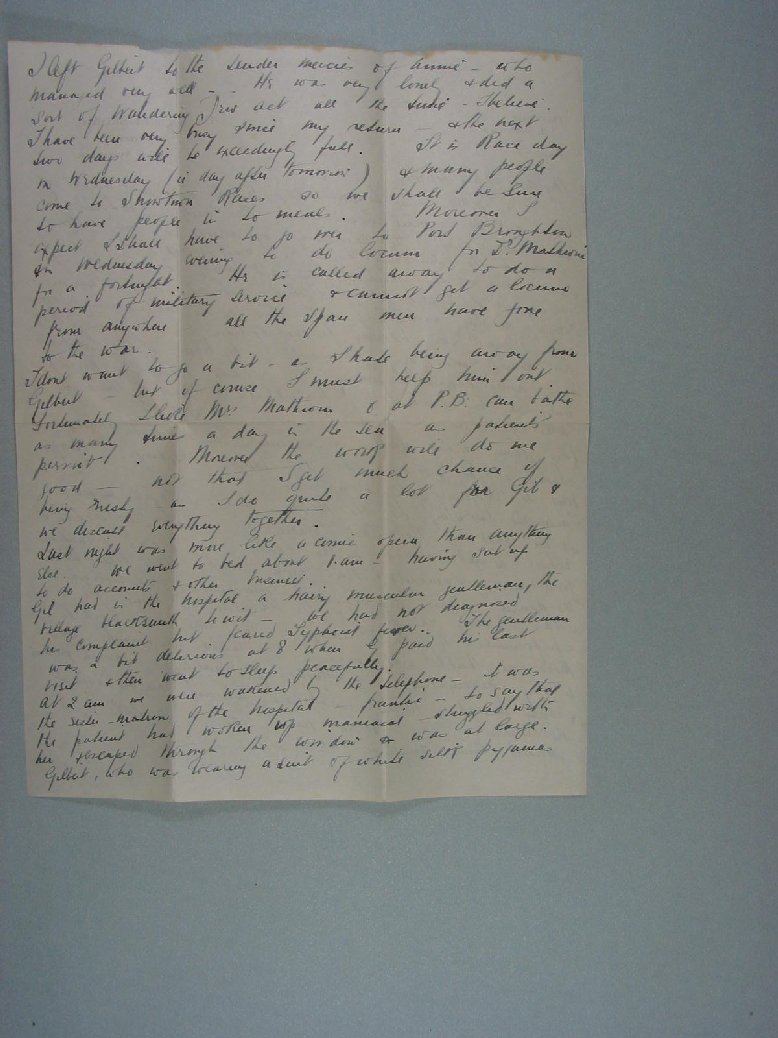 I left Gilbert to the tender mercies of Annie - who
managed very well - . He was very lonely & did a
sort of Wandering Jew act all the time - I believe.
I have been very busy since my return - & the next
two days will be exceedingly full. It is Race day
on Wednesday (ie day after tomorrow) & many people
come to Snowtown Races so we shall be sure
to have people in to meals. Moreover I
expect I shall have to go over to Port Broughton
on Wednesday evening to do locum for Dr Mathison
for a fortnight. He is called away to do a
period of military service & cannot get a locum
from anywhere all the spare men have gone
to the war.
I dont want to go a bit - as I hate being away from
Gilbert - but of course I must help him out.
Fortunately I like Mrs Mathison & at P.B. can bathe
as many times a day in the sea as patients
permit. Moreover the work will do me
good - not that I get much chance of
being rusty - as I do quite a lot for Gib &
we discuss everything together.
Last night was more like a comic opera than anything
else. We went to bed about 1. am - having sat up
to do accounts & other business.
Gil had in the hospital a hairy muscular gentleman, the
village blacksmith to wit - we had not diagnosed
his complaint but feared Typhoid fever. The gentleman
was a bit delirious at 8 when G paid his last
visit & then went to sleep peacefully.
At 2 am we were wakened by the telephone - it was
the sister-matron of the hospital - frantic - to say that
the patient had woken up maniacal - struggled with
her & escaped through the window & was at large.
Gilbert, who was wearing a suit of white silk pyjamas